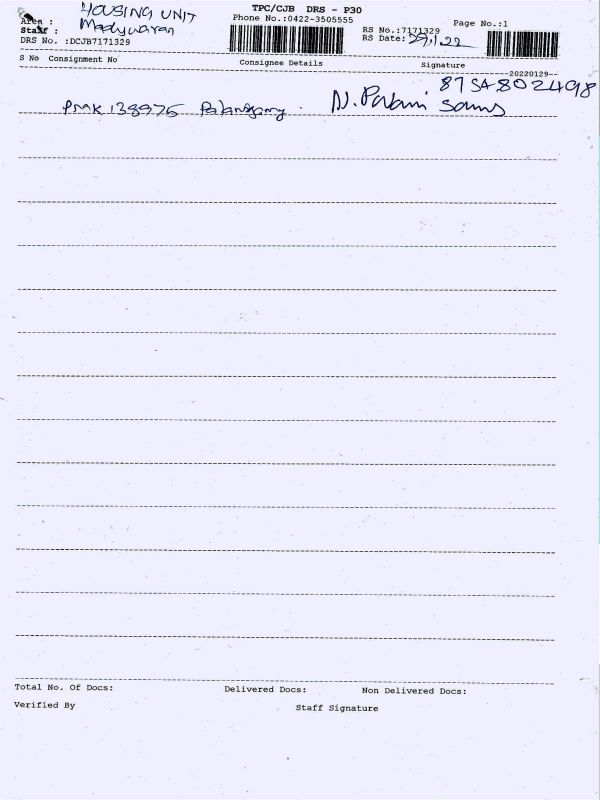 HOUSING UNIT
TPC/CJB DRS - P30
Area :
Phone No.:0422-3505555
Page No.:1
Staff : Madywaran
RS No.:7171329
DRS No. :DCJB7171329
RS Date: 29.1.22
S No Consignment No Consignee Details Signature
--20220129--
87SA802498
PMK 138975 N. Palani Sams
Total No. Of Docs: Delivered Docs: Non Delivered Docs:
Verified By Staff Signature